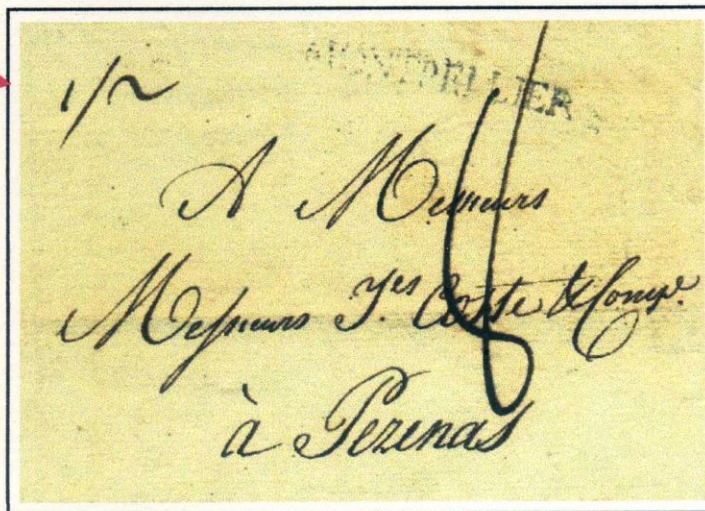 1/2
MONTPELLIER
A Messieurs
Messieurs J.es Coste & Comp.e
à Pezenas